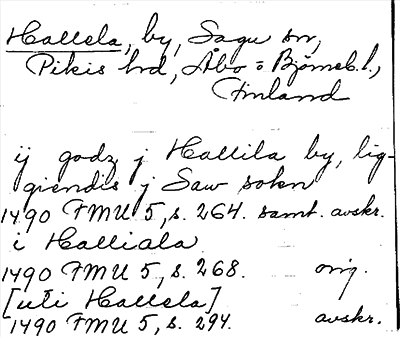 Hallela, by, Sagu sn,
Pikis hd, Åbo o Björneb. l.,
Finland
ij godz j Hallila by, lig-
giendis j Saw sokn
1490 FMU 5, s. 264. samt. avskr.
i Halliala
1490 FMU 5, s. 268. orig.
[uti Hallela]
1490 FMU 5, s. 294. avskr.